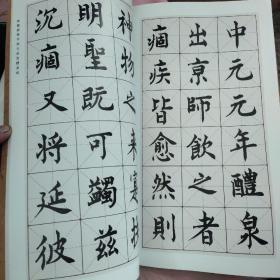 中元元年醴泉
出京師飲之者
痼疾皆愈然則
神物之来寔扶
明聖既可蠲兹
沉痼又将延彼